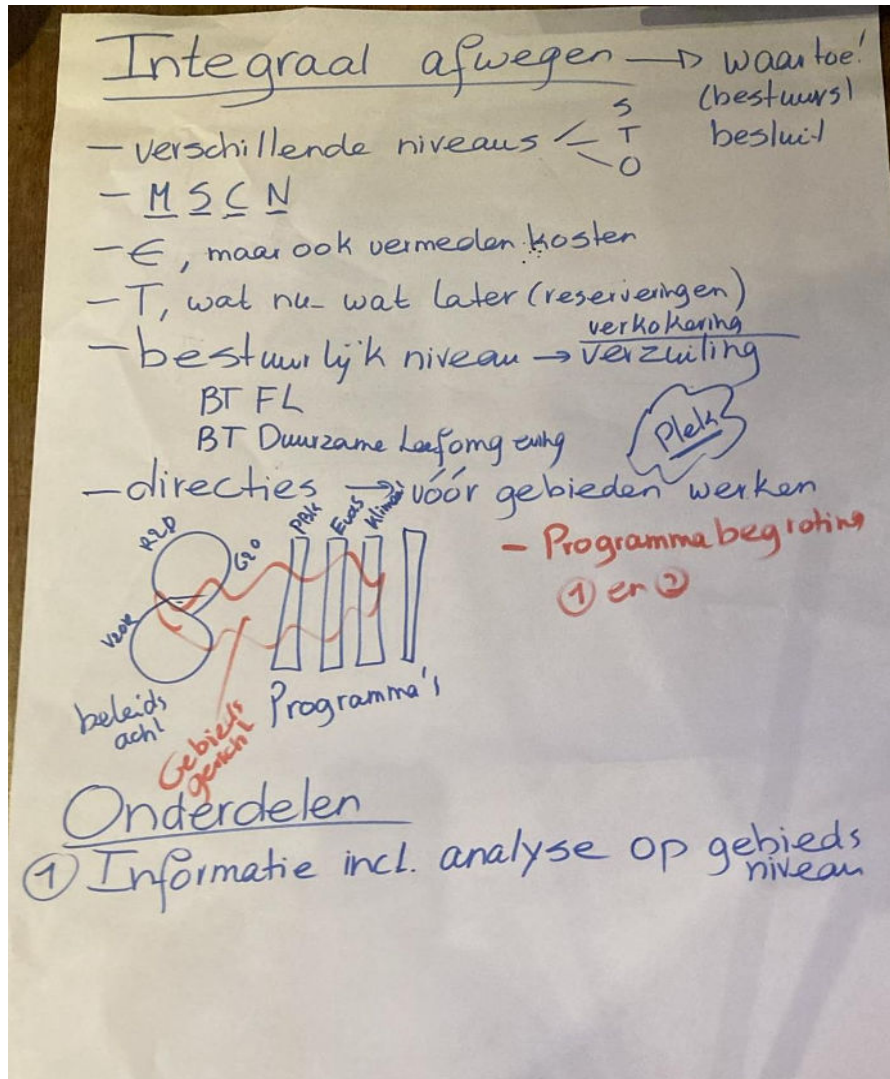 Integraal afwegen → waartoe!
(bestuurs)
besluit
- verschillende niveaus
S
T
O
- M S C N
- €, maar ook vermeden kosten
- T, wat nu - wat later (reserveringen)
verkokering
- bestuurlijk niveau → verzuiling
BT FL
BT Duurzame Leefomgeving
Plek
- directies → vóór gebieden werken
- Programmabegroting
① en ②
PBLK
Klimaat
G20
beleids
acht
Gebieds
gericht
Programma's
Onderdelen
① Informatie incl. analyse op gebieds
niveau